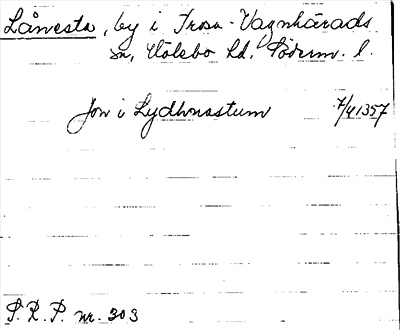 Lånesta, by i Trosa-Vagnhärads
sn, Hölebo hd, Söderm. l.
Jon i Lydhunastum 7/4 1357
S. R. P. nr. 303